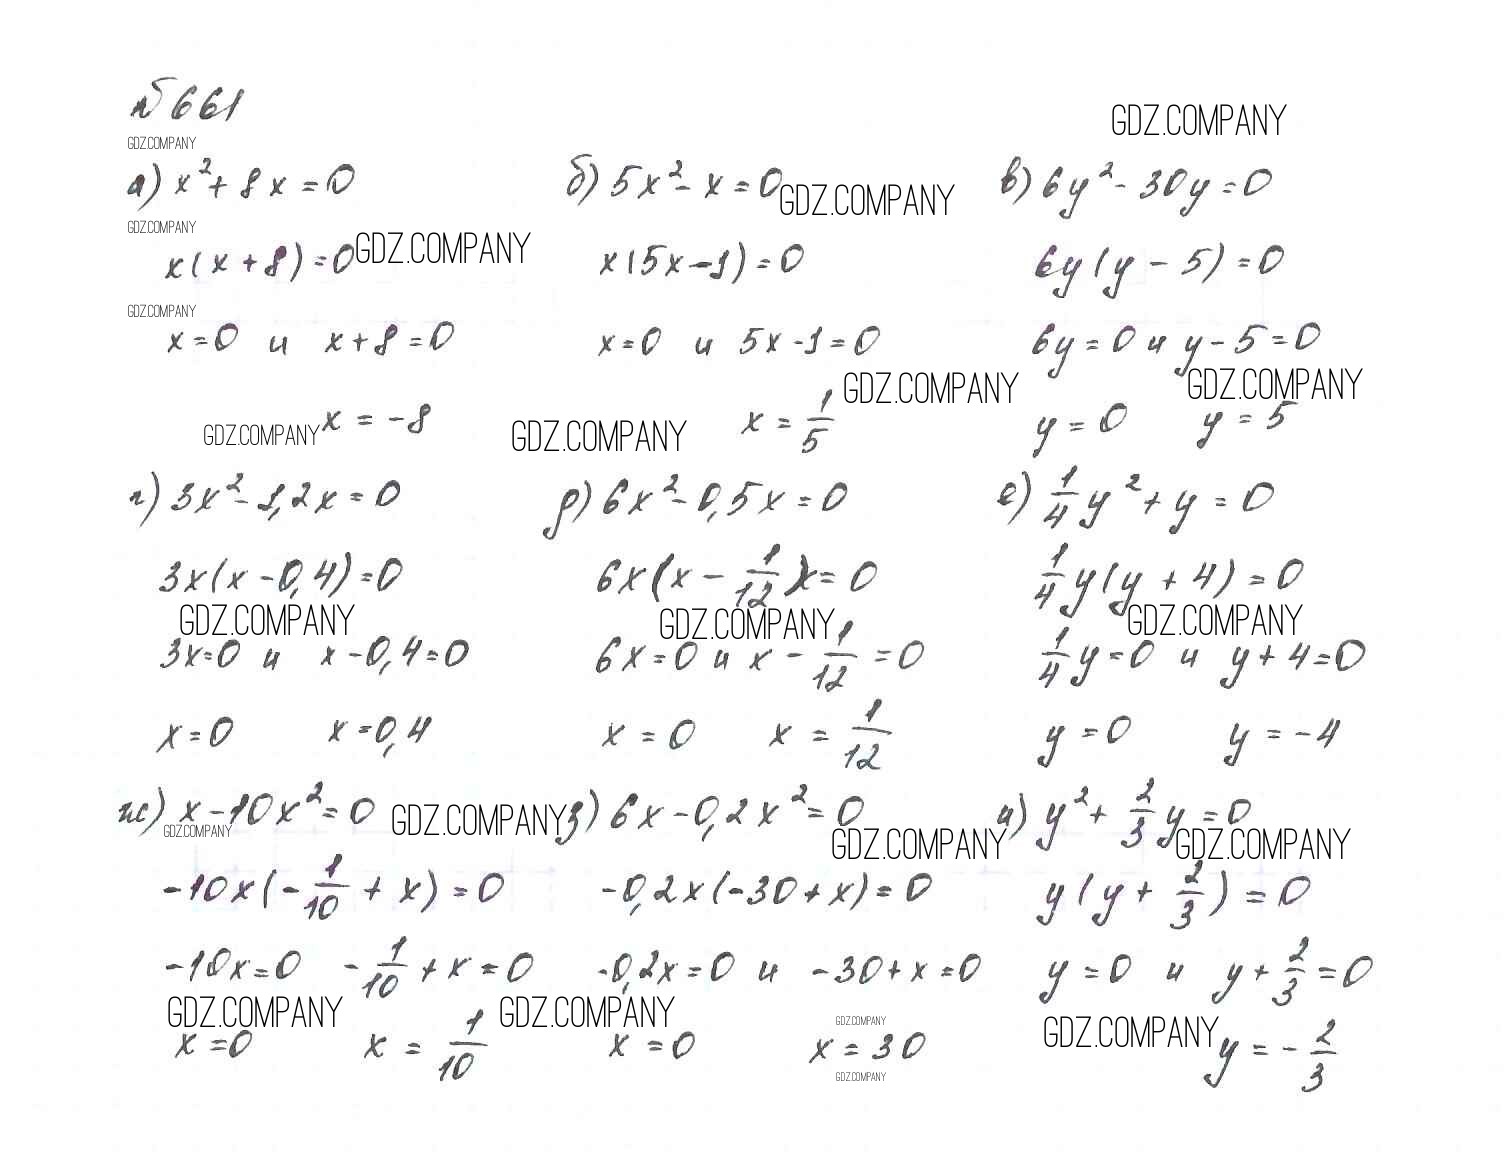 № 661
GDZ.COMPANY
GDZ.COMPANY
а) x² + 8x = 0
б) 5x² - x = 0
GDZ.COMPANY
в) 6y² - 30y = 0
GDZ.COMPANY
x(x + 8) = 0
GDZ.COMPANY
x(5x - 1) = 0
6y(y - 5) = 0
GDZ.COMPANY
x = 0 и x + 8 = 0
x = 0 и 5x - 1 = 0
6y = 0 и y - 5 = 0
GDZ.COMPANY
GDZ.COMPANY
GDZ.COMPANY
x = -8
GDZ.COMPANY
x = 1/5
y = 0 y = 5
г) 3x² - 1,2x = 0
д) 6x² - 0,5x = 0
е) 1/4 y² + y = 0
3x(x - 0,4) = 0
6x(x - 1/12) = 0
1/4 y(y + 4) = 0
GDZ.COMPANY
GDZ.COMPANY
GDZ.COMPANY
3x = 0 и x - 0,4 = 0
6x = 0 и x - 1/12 = 0
1/4 y = 0 и y + 4 = 0
x = 0 x = 0,4
x = 0 x = 1/12
y = 0 y = -4
ж) x - 10x² = 0
GDZ.COMPANY
з) 6x - 0,2x² = 0
и) y² + 2/3 y = 0
GDZ.COMPANY
GDZ.COMPANY
GDZ.COMPANY
-10x(-1/10 + x) = 0
-0,2x(-30 + x) = 0
y(y + 2/3) = 0
-10x = 0 -1/10 + x = 0
-0,2x = 0 и -30 + x = 0
y = 0 и y + 2/3 = 0
GDZ.COMPANY
GDZ.COMPANY
GDZ.COMPANY
GDZ.COMPANY
x = 0 x = 1/10
x = 0 x = 30
y = -2/3
GDZ.COMPANY